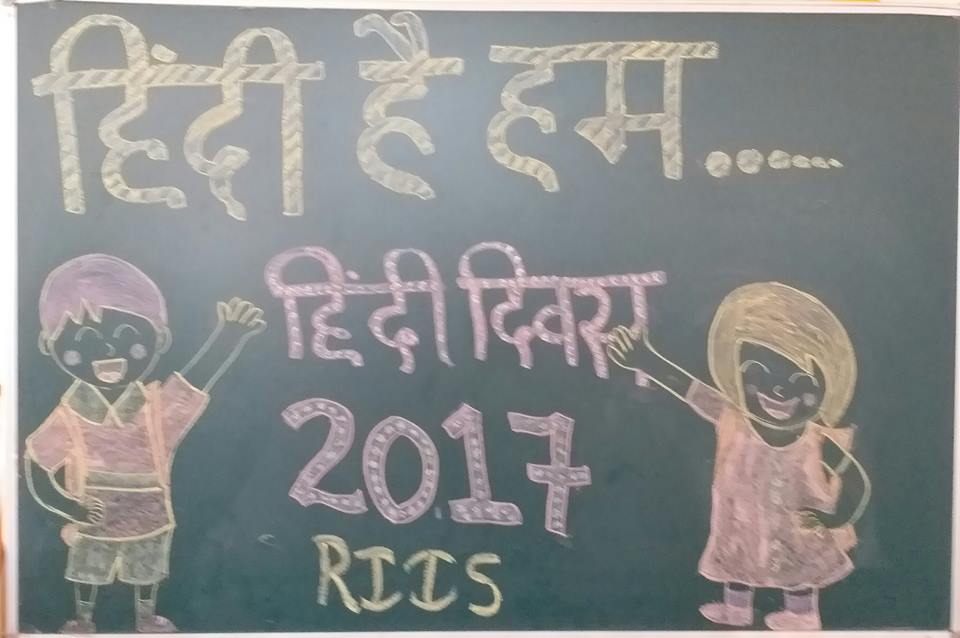 हिंदी है हम......
हिंदी दिवस
2017
RIIS